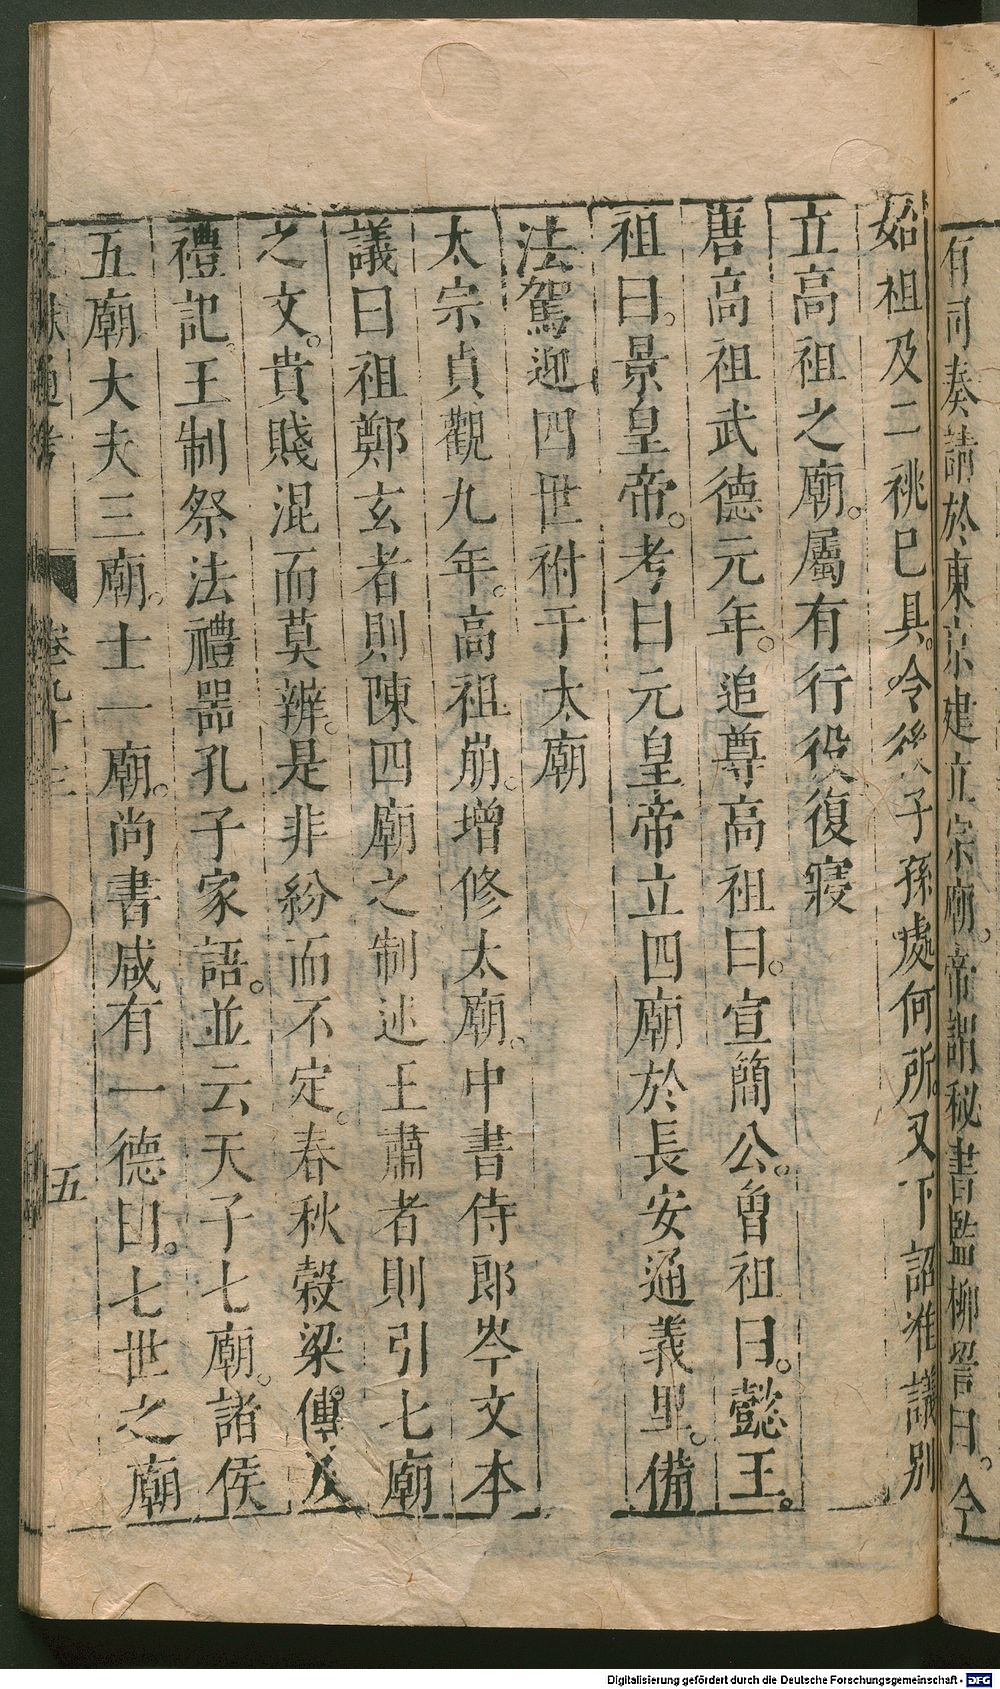 有司奏請於東京建立宗廟。帝謂秘書監柳䛒曰。今
始祖及二祧已具。令後子孫處何所。又下詔准議別
立高祖之廟。屬有行役復寢
唐高祖武德元年。追尊高祖曰。宣簡公。曾祖曰。懿王。
祖曰。景皇帝。考曰元皇帝立四廟於長安通義里。備
法駕迎四世祔于太廟
太宗貞觀九年。高祖崩。增修太廟。中書侍郎岑文本
議曰祖鄭玄者則陳四廟之制述王肅者則引七廟
之文。貴賤混而莫辨。是非紛而不定。春秋榖梁傳及
禮記。王制祭法禮器孔子家語。並云天子七廟。諸侯
五廟大夫三廟。士一廟。尚書咸有一德曰。七世之廟
文獻通考 卷九十三 五
Digitalisierung gefördert durch die Deutsche Forschungsgemeinschaft - DFG